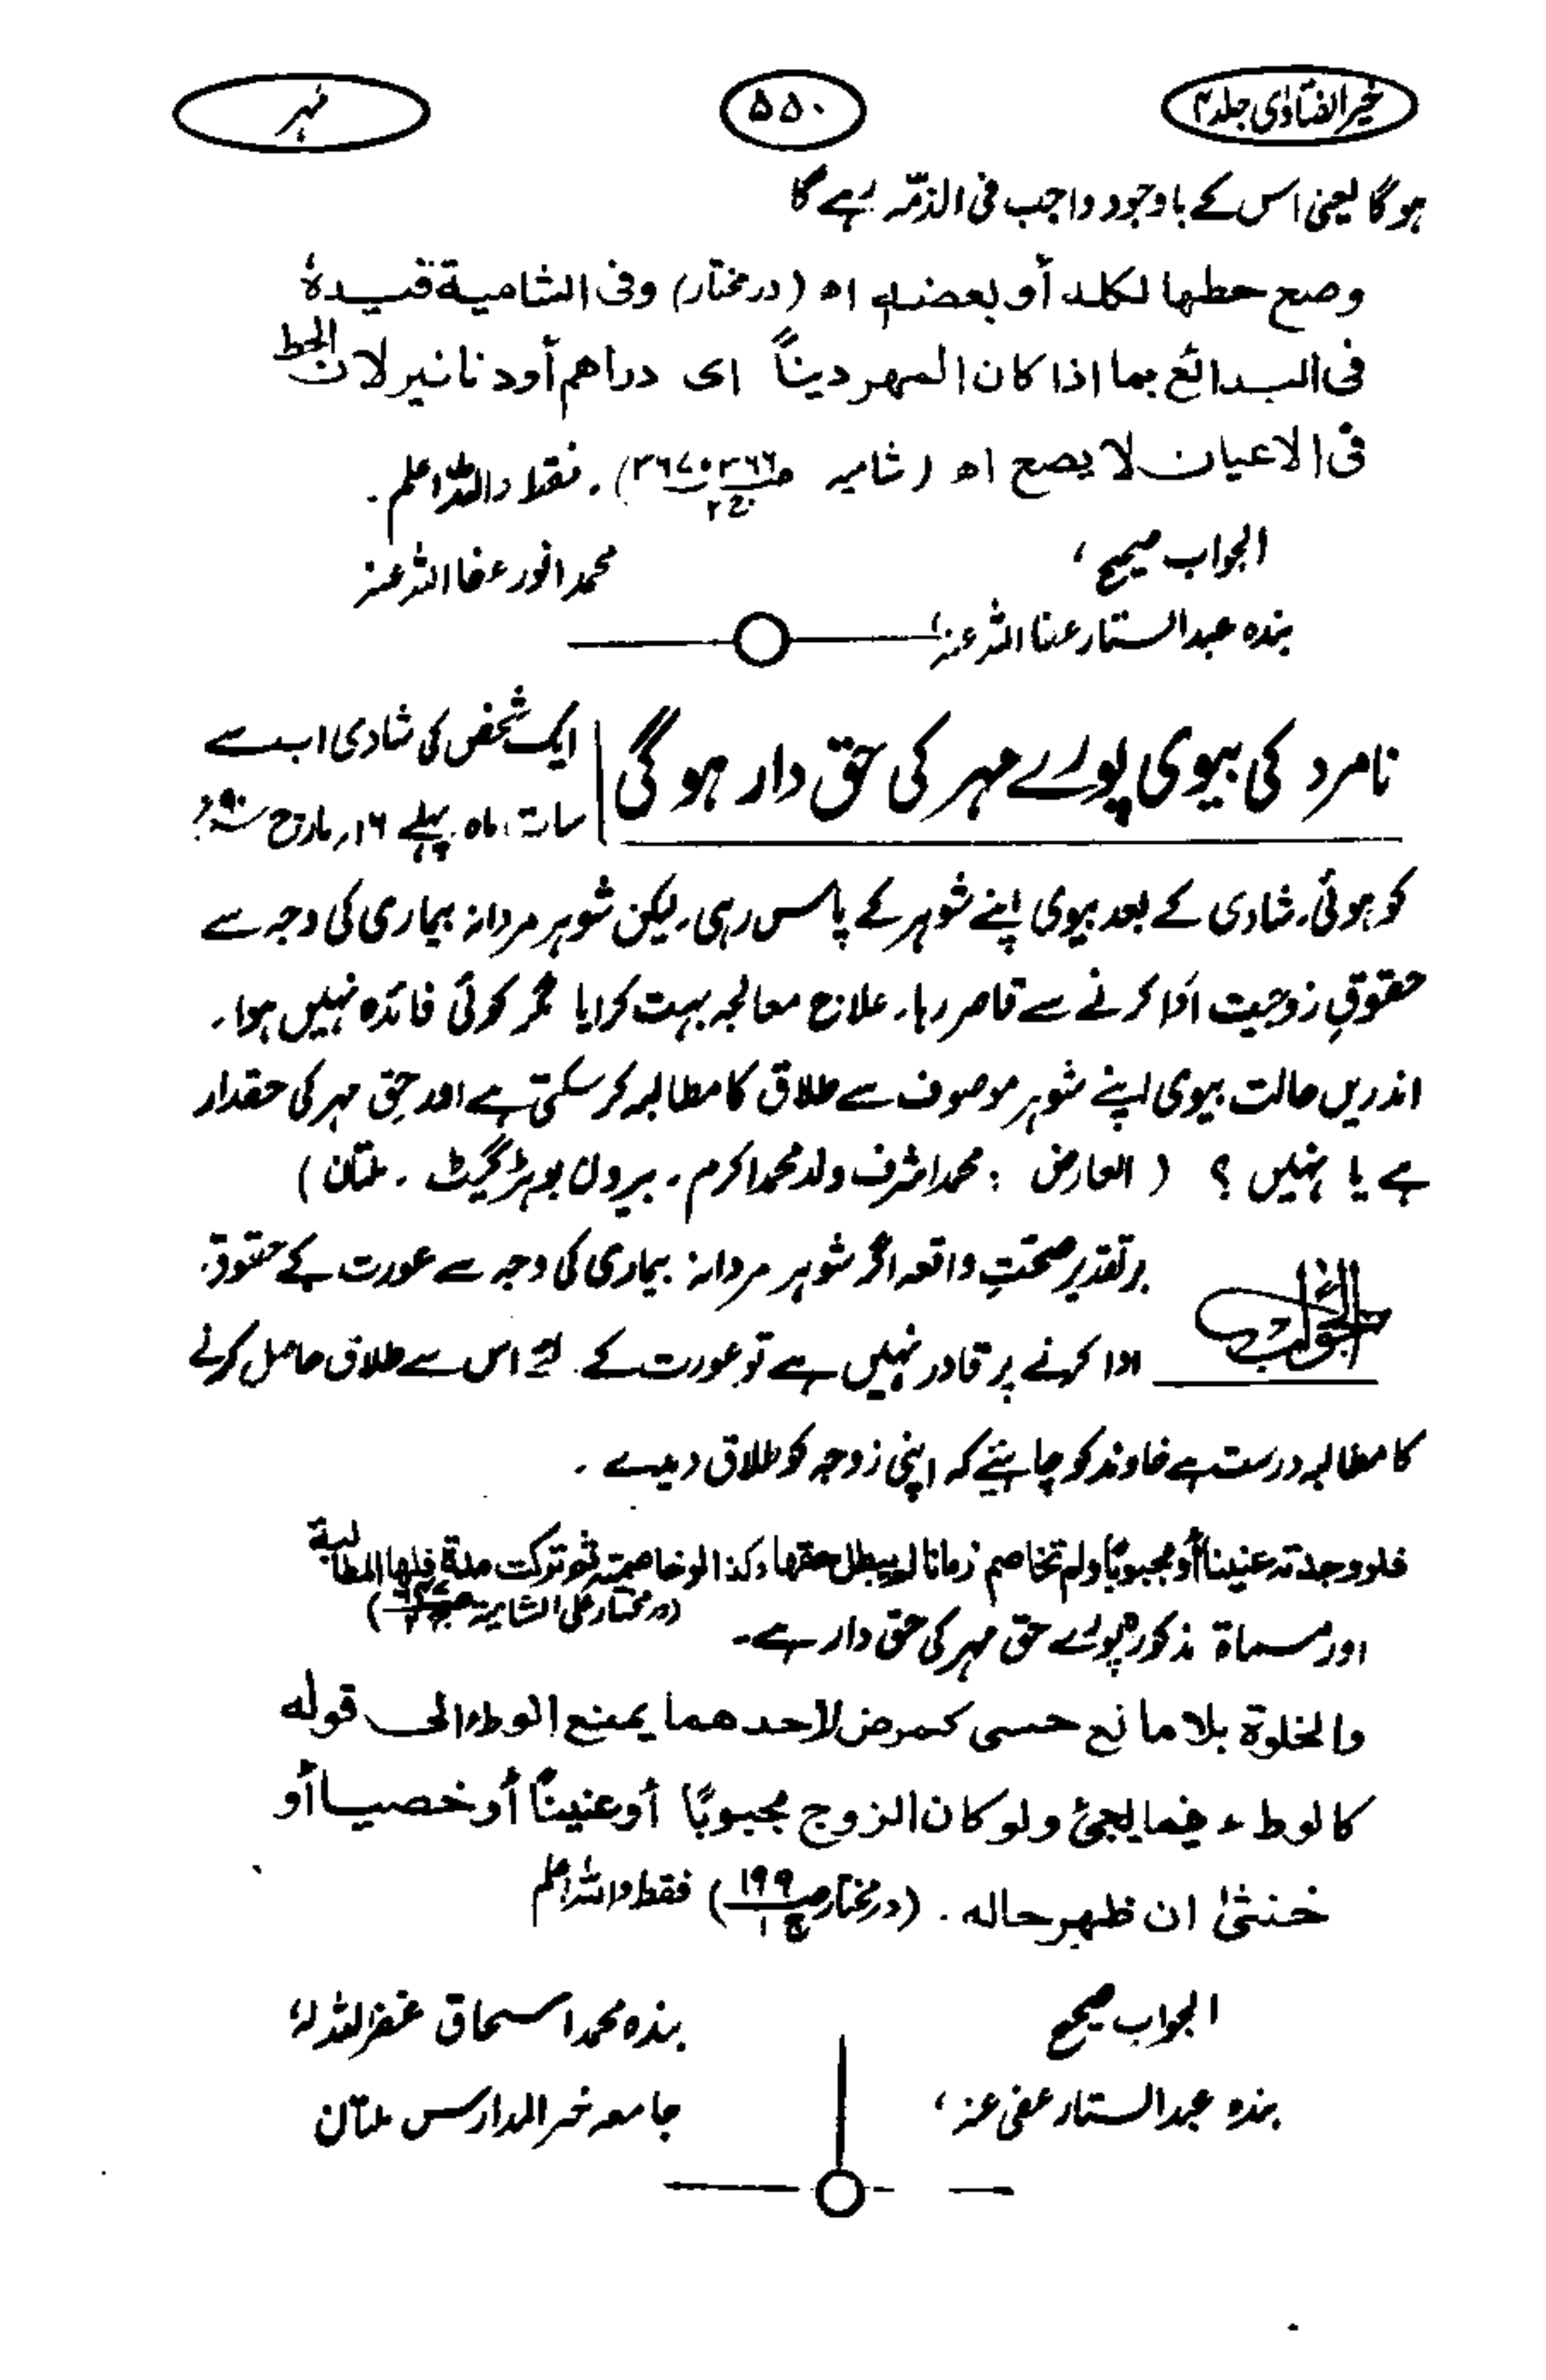 خیر الفتاوٰی جلد ۴
۵۵۰
مہر
ہوگا یعنی اس کے باوجود واجب فی الذمّہ رہے گا
وصح حطها لکله أو بعضه اھ (درمختار) وفی الشامیة قیده
فی البدائع بما اذا کان المهر دیناً ای دراهم أو دنانیر لان الحط
فی الاعیان لا یصح اھ (شامیہ). فقط واللہ اعلم.
الجواب صحیح،
محمد انور عفا اللہ عنہ
بندہ عبدالستار عفا اللہ عنہ،
نامرد کی بیوی پورے مہر کی حق دار ہوگی
ایک شخص کی شادی اب سے
سات ماہ پہلے ۱۶ر مارچ
کو ہوئی۔ شادی کے بعد بیوی اپنے شوہر کے پاس رہی۔ لیکن شوہر مردانہ بیماری کی وجہ سے
حقوقِ زوجیت ادا کرنے سے قاصر رہا۔ علاج معالجہ بہت کرایا مگر کوئی فائدہ نہیں ہوا۔
اندریں حالت بیوی اپنے شوہر موصوف سے طلاق کا مطالبہ کر سکتی ہے اور حق مہر کی حقدار
ہے یا نہیں؟ (العارض : محمد اشرف ولد محمد اکرم۔ بیرون بوہڑ گیٹ۔ ملتان)
الجواب
برتقدیر صحتِ واقعہ اگر شوہر مردانہ بیماری کی وجہ سے عورت کے حقوق
ادا کرنے پر قادر نہیں ہے تو عورت کے لئے اس سے طلاق حاصل کرنے
کا مطالبہ درست ہے خاوند کو چاہیئے کہ اپنی زوجہ کو طلاق دیدے۔
فلو وجدته عنینا أو مجبوبًا ولم تخاصم زمانا لم یبطل حقها وکذا لو خاصمته ثم ترکت مدة فلها المطالبة
(درمختار علی الشامیة)
اور مسماۃ مذکورہ پورے حق مہر کی حق دار ہے۔
والخلوة بلا مانع حسی کمرض لاحدهما یمنع الوطء الی قوله
کالوطء فیما یجیئ ولو کان الزوج مجبوبًا أو عنینًا أو خصیا أو
خنثیٰ ان ظهر حاله. (درمختار ص۱۹۹ ج۱) فقط واللہ اعلم
الجواب صحیح
بندہ محمد اسحاق غفر اللہ لہ،
بندہ عبدالستار عفی عنہ،
جامعہ خیر المدارس ملتان